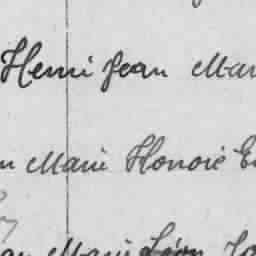 Henri Jean Mar
n Marie Honoré E
Marie Léon